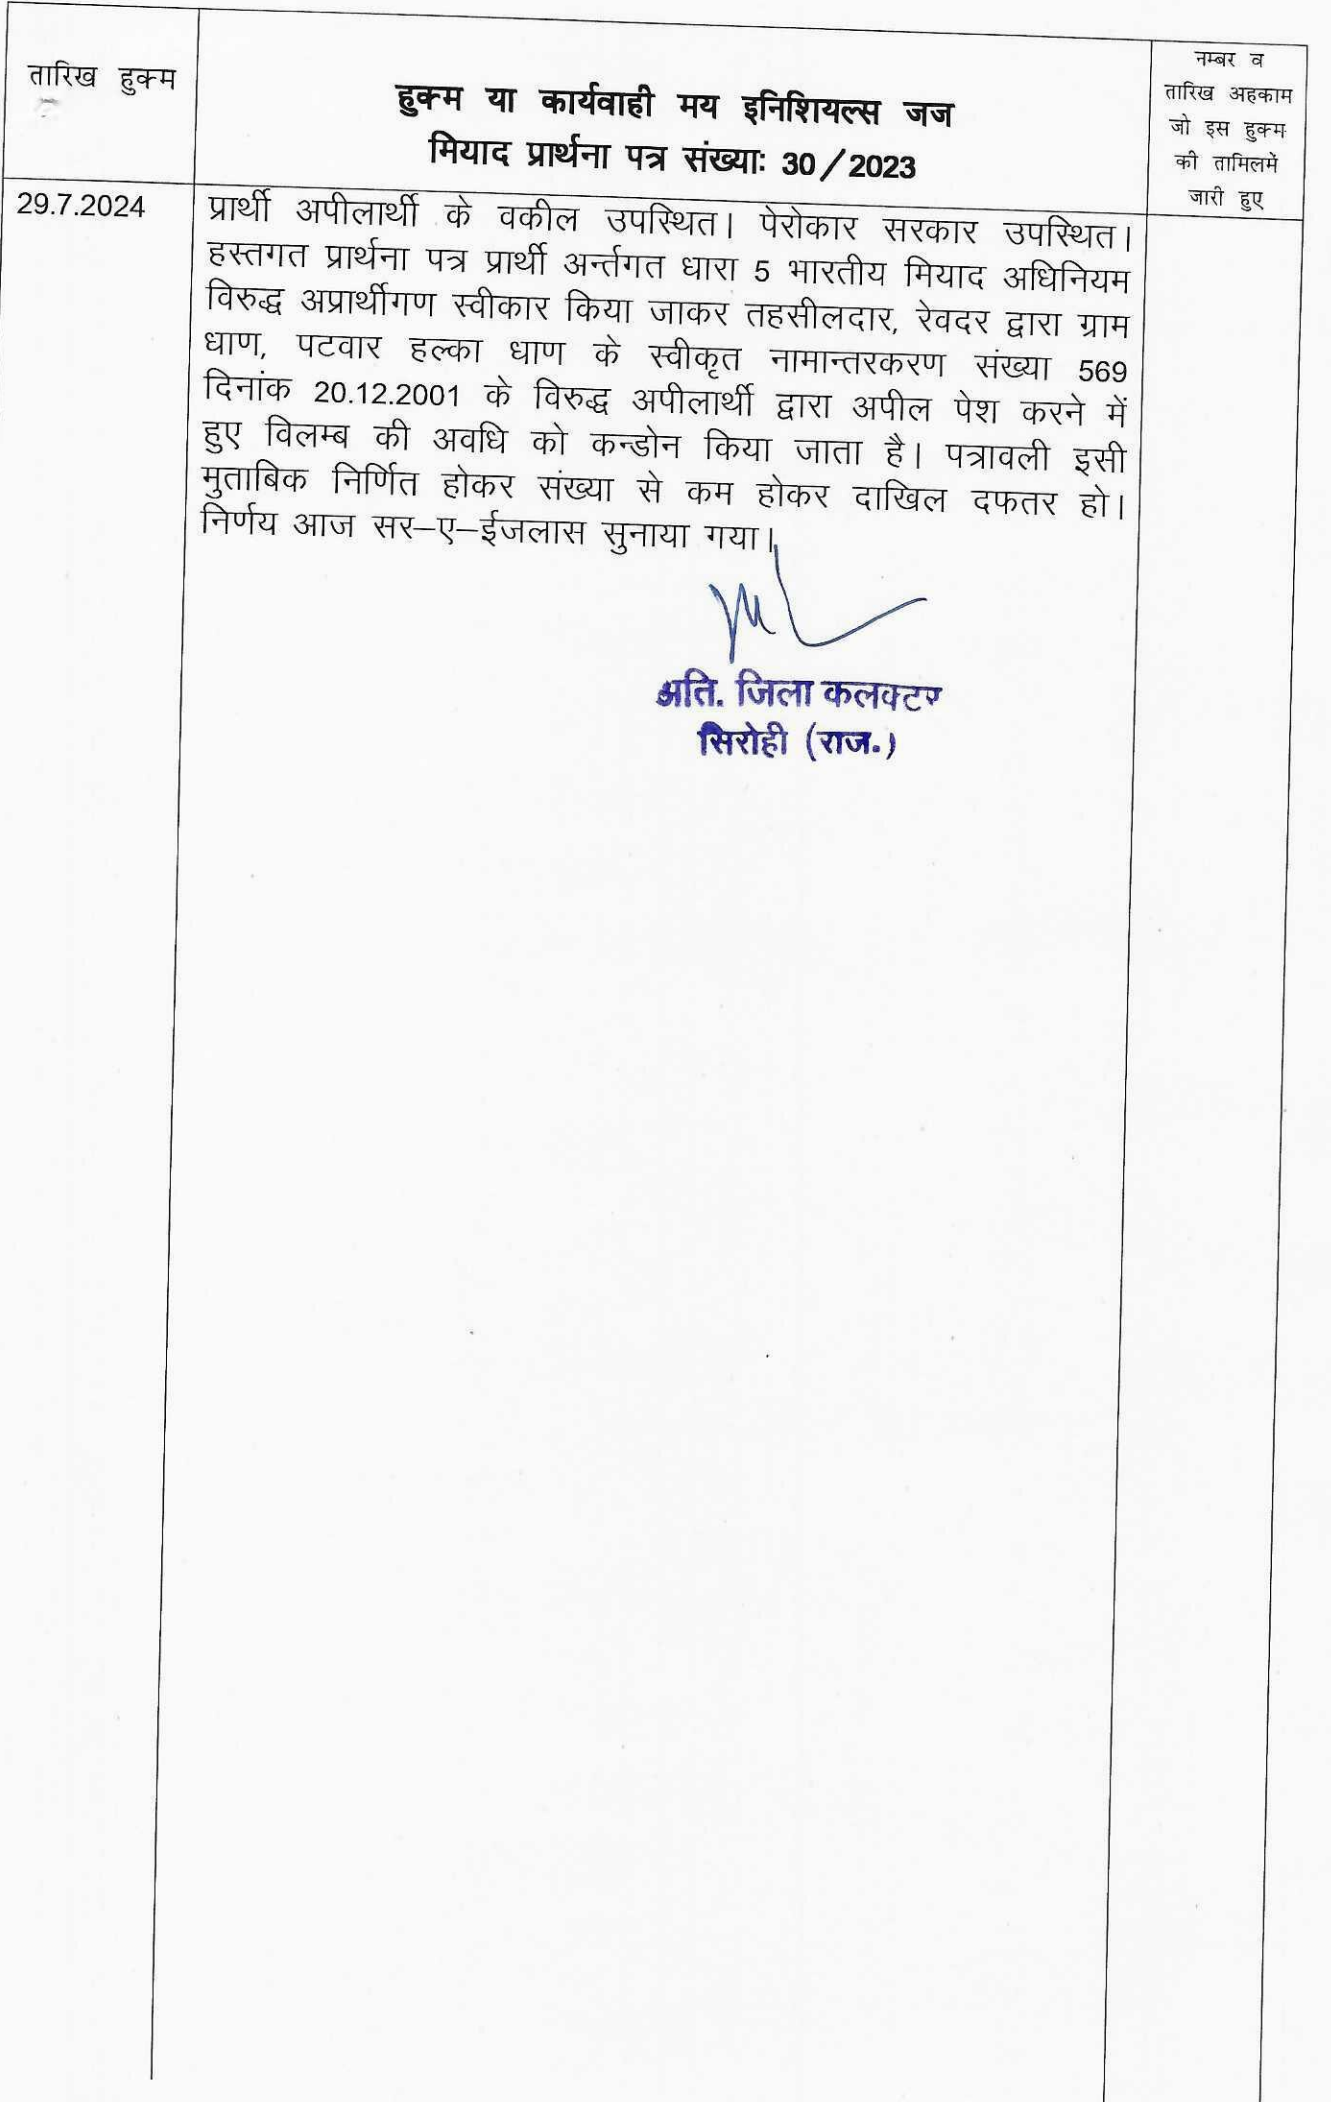 तारिख हुक्म
हुक्म या कार्यवाही मय इनिशियल्स जज
मियाद प्रार्थना पत्र संख्याः 30/2023
नम्बर व
तारिख अहकाम
जो इस हुक्म
की तामिलमें
जारी हुए
29.7.2024
प्रार्थी अपीलार्थी के वकील उपस्थित। पेरोकार सरकार उपस्थित।
हस्तगत प्रार्थना पत्र प्रार्थी अर्न्तगत धारा 5 भारतीय मियाद अधिनियम
विरुद्ध अप्रार्थीगण स्वीकार किया जाकर तहसीलदार, रेवदर द्वारा ग्राम
धाण, पटवार हल्का धाण के स्वीकृत नामान्तरकरण संख्या 569
दिनांक 20.12.2001 के विरुद्ध अपीलार्थी द्वारा अपील पेश करने में
हुए विलम्ब की अवधि को कन्डोन किया जाता है। पत्रावली इसी
मुताबिक निर्णित होकर संख्या से कम होकर दाखिल दफतर हो।
निर्णय आज सर–ए–ईजलास सुनाया गया।
अति. जिला कलक्टर
सिरोही (राज.)